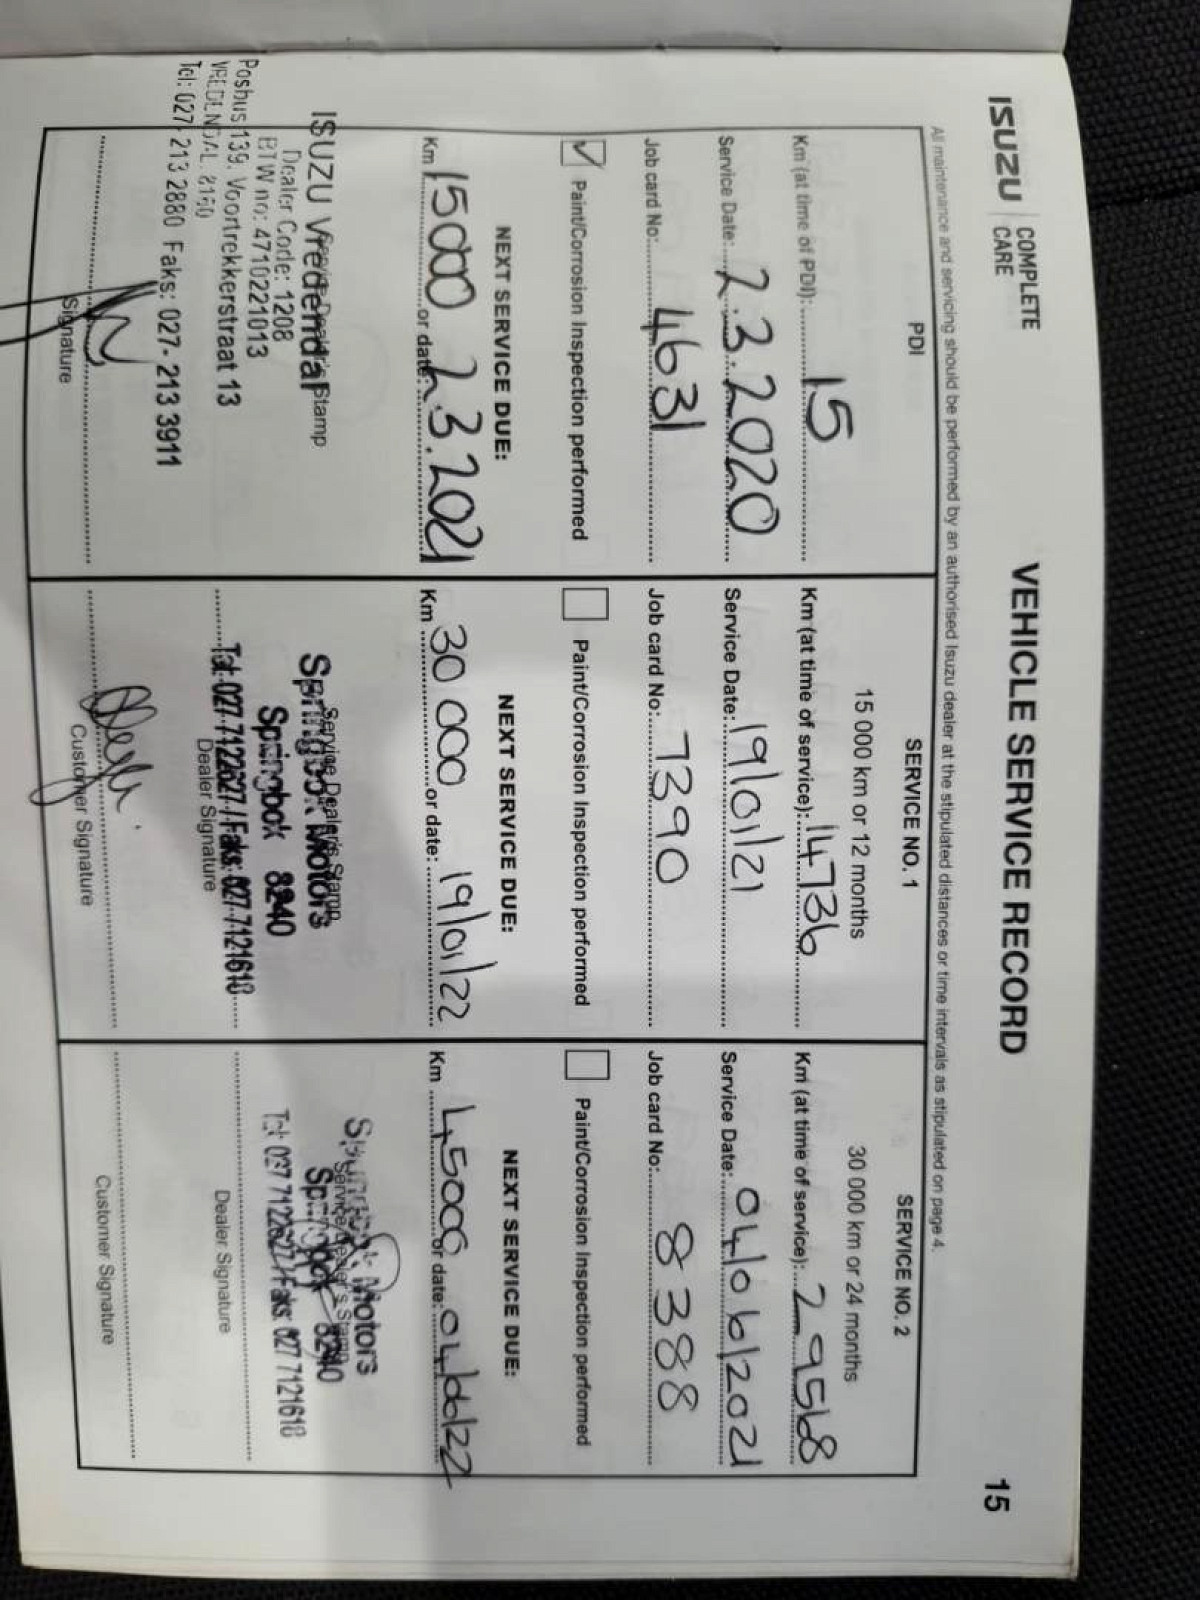 ISUZU COMPLETE CARE
VEHICLE SERVICE RECORD
15
All maintenance and servicing should be performed by an authorised Isuzu dealer at the stipulated distances or time intervals as stipulated on page 4.
PDI
Km (at time of PDI): 15
Service Date: 2.3.2020
Job card No: 4631
✓ Paint/Corrosion Inspection performed
NEXT SERVICE DUE:
Km 15000 or date: 2.3.2021
Service Dealer's Stamp
ISUZU Vredendal
Dealer Code: 1208
BTW no: 4710221013
Posbus 139, Voortrekkerstraat 13
VREDENDAL 8160
Tel: 027-213 2880 Faks: 027-213 3911
Signature
SERVICE NO. 1
15 000 km or 12 months
Km (at time of service): 14736
Service Date: 19/01/21
Job card No: 7390
Paint/Corrosion Inspection performed
NEXT SERVICE DUE:
Km 30 000 or date: 19/01/22
Service Dealer's Stamp
Springbok Motors
Springbok 8240
Tel: 027 7122627 / Faks: 027 7121618
Dealer Signature
Customer Signature
SERVICE NO. 2
30 000 km or 24 months
Km (at time of service): 29568
Service Date: 04/06/2021
Job card No: 8388
Paint/Corrosion Inspection performed
NEXT SERVICE DUE:
Km 45000 or date: 04/06/22
Service Dealer's Stamp
Springbok Motors
Springbok 8240
Tel: 027 7122627 / Faks: 027 7121618
Dealer Signature
Customer Signature